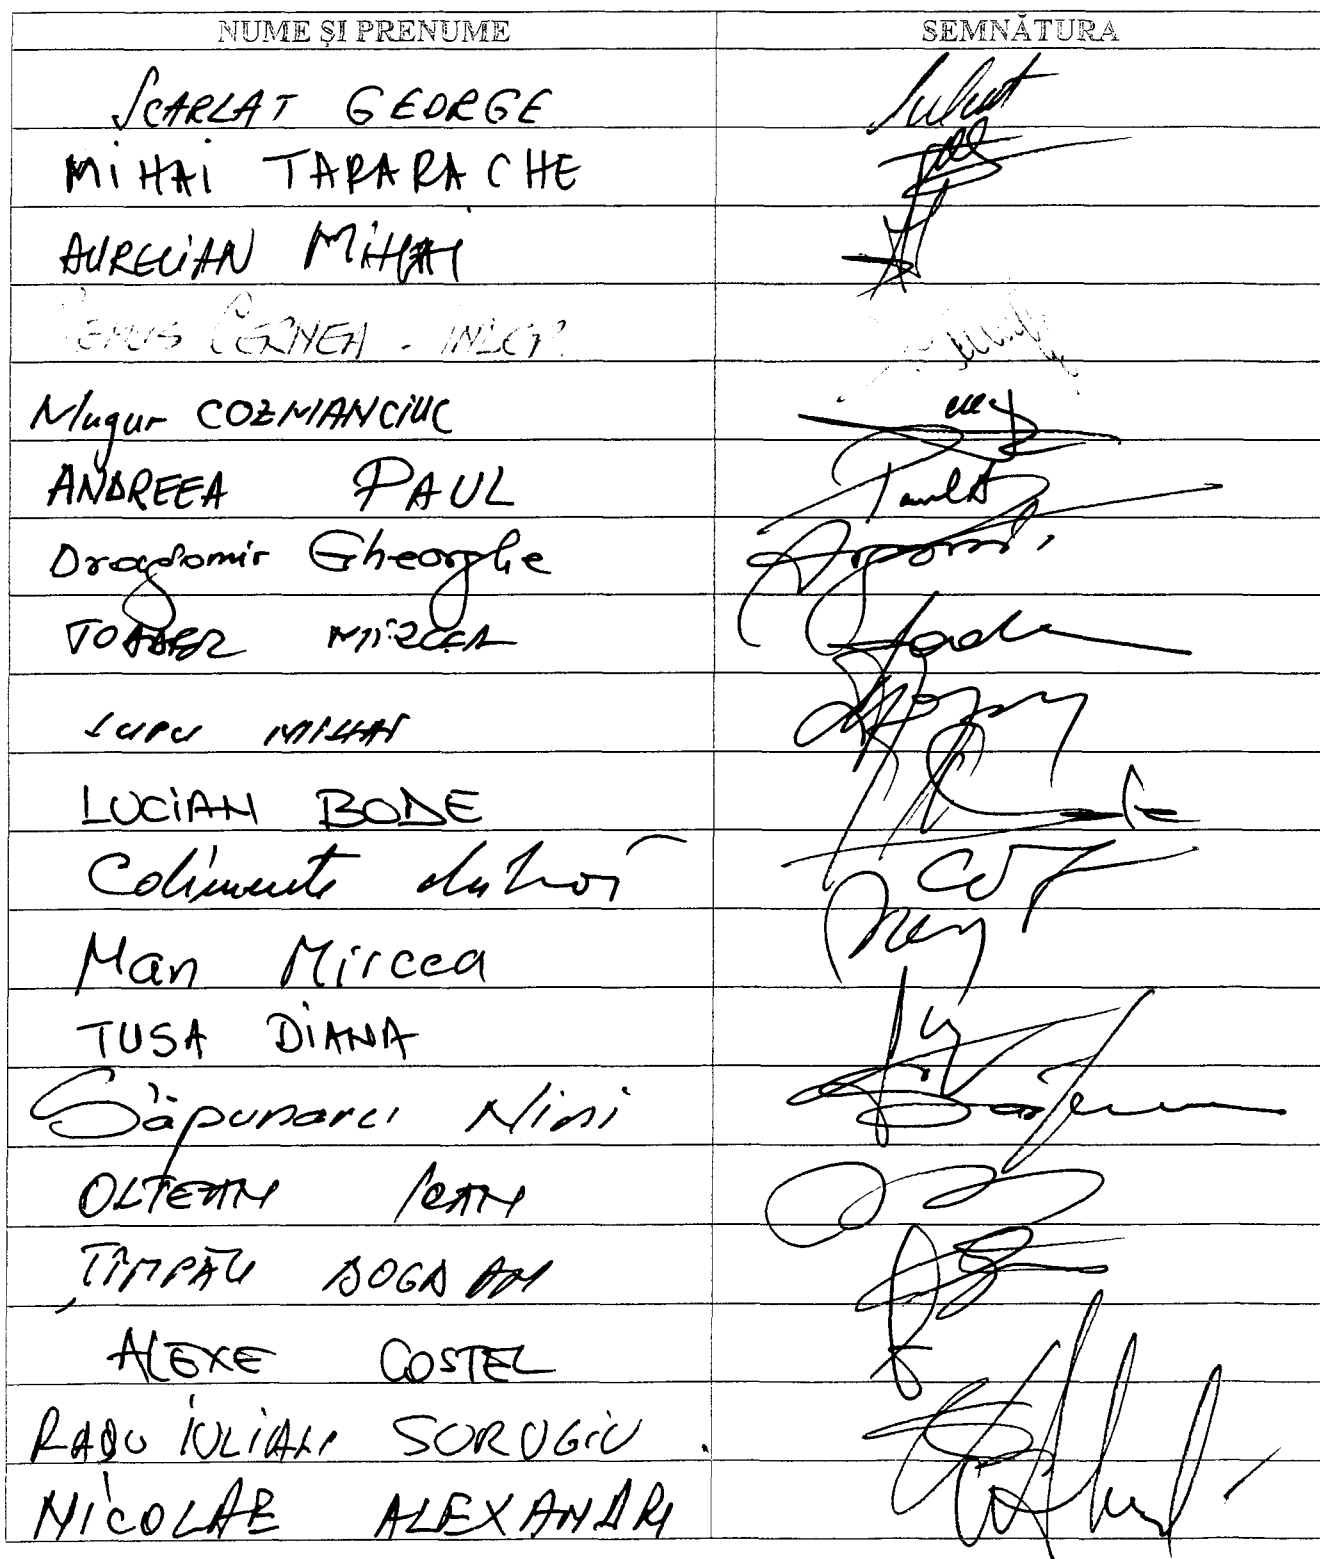 NUME ȘI PRENUME SEMNĂTURA
SCARLAT GEORGE
MIHAI TARARACHE
AURELIAN MIHAI
REMUS CERNEA - INDEP.
Mugur COZMANCIUC
ANDREEA PAUL
Dragomir Gheorghe
TOADER MIRCEA
LUPU MIHAI
LUCIAN BODE
Man Mircea
TUSA DIANA
Săpunaru Nini
OLTEAN IOAN
ȚÎMPĂU BOGDAN
ALEXE COSTEL
RADU IULIAN SURUGIU
NICOLAE ALEXANDRI